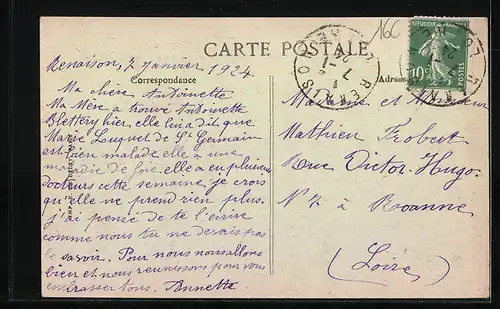 16C
CARTE POSTALE
RÉPUBLIQUE FRANÇAISE
10c
POSTES
Renaison, 7 janvier 1924.
Correspondance
Ma chère Antoinette
Ma Mère a trouvé Antoinette
Blettery hier, elle lui a dit que
Marie Louguet de St Germain
est bien malade, elle a une
maladie de foie. elle a eu plusieurs
docteurs cette semaine, je crois
qu'elle ne prend rien plus.
j'ai pensé de te l'écrire
comme nous tu ne devais pas
le savoir. Pour nous nous allons
bien et nous reunissons pour vous
embrasser tous. Annette
Adresse
Madame et Monsieur
Mathieu Frobert
Rue Victor-Hugo
N° 7 à Roanne
(Loire)